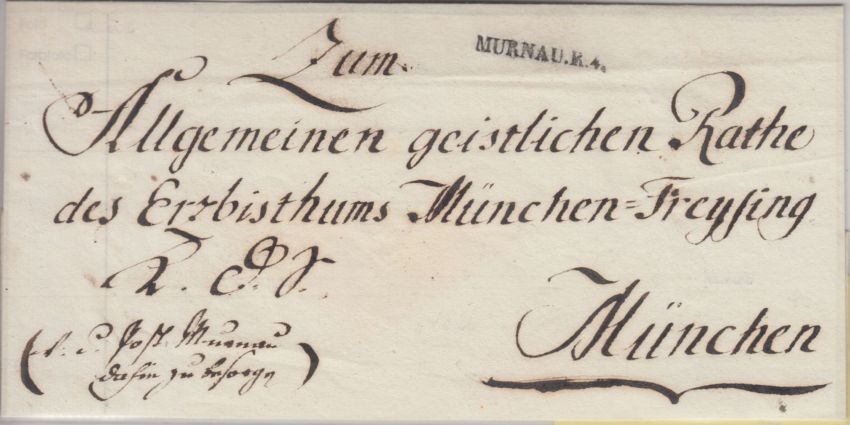 Zum
MURNAU.R.4.
Allgemeinen geistlichen Rathe
des Erzbisthums München=Freysing
München
Post Murnau
dahin zu besorgen